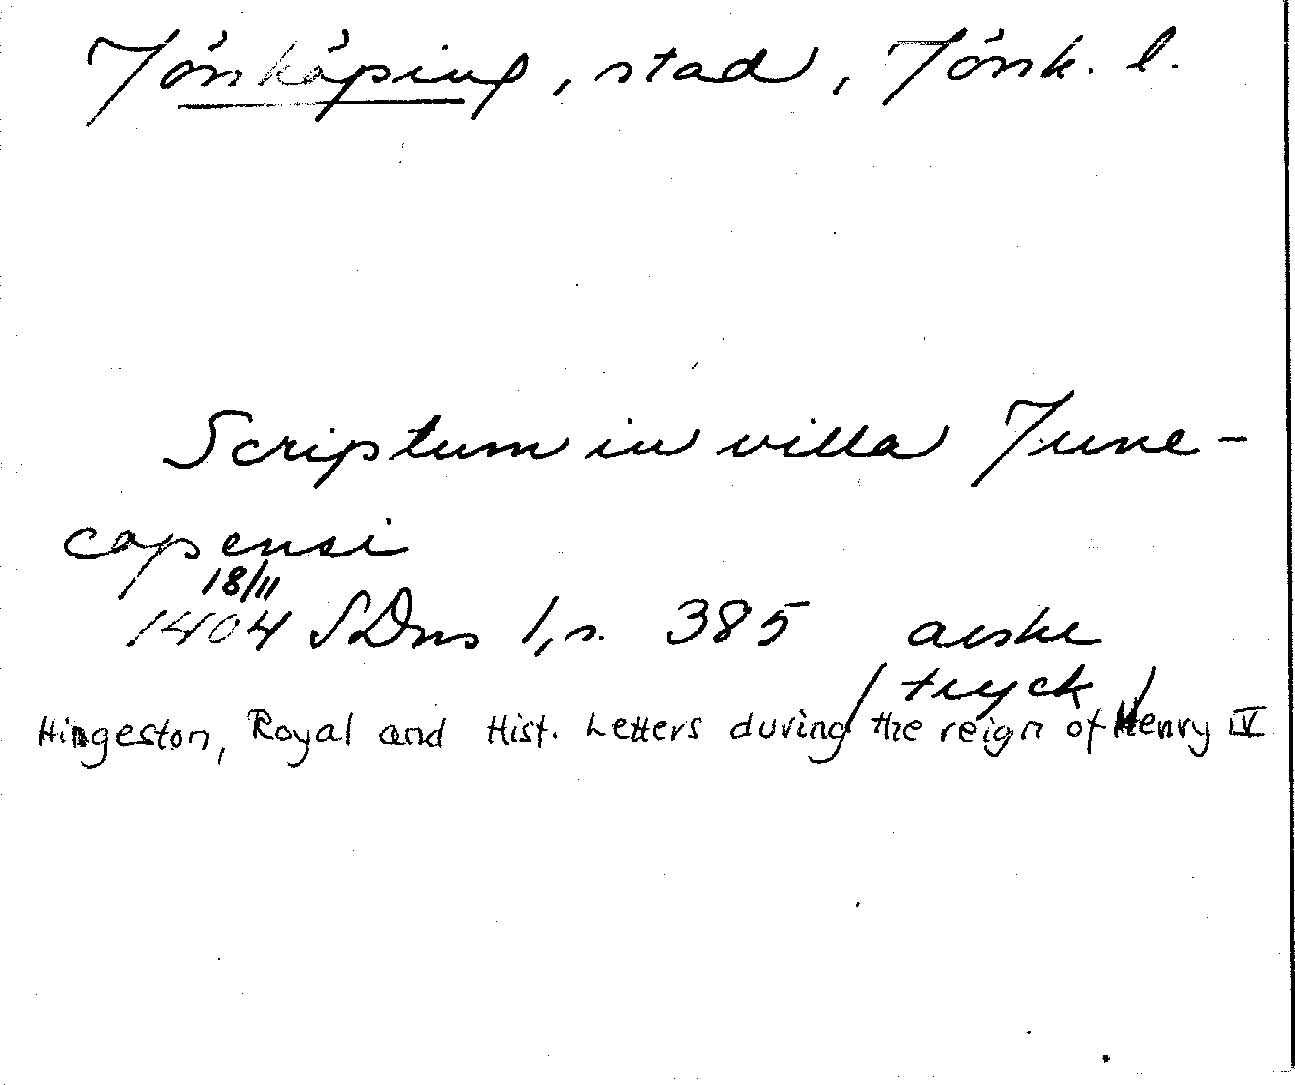 Jönköping, stad, Jönk. l.
Scriptum in villa June-
capensi
18/11
1404 SDns 1, s. 385 avskr
/ tryck /
Hingeston, Royal and Hist. Letters during the reign of Henry IV